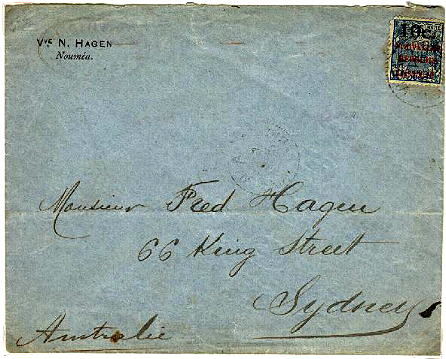 Vve N. HAGEN
Nouméa.
10c
Monsieur Fred Hagen
66 King Street
Sydney
Australie